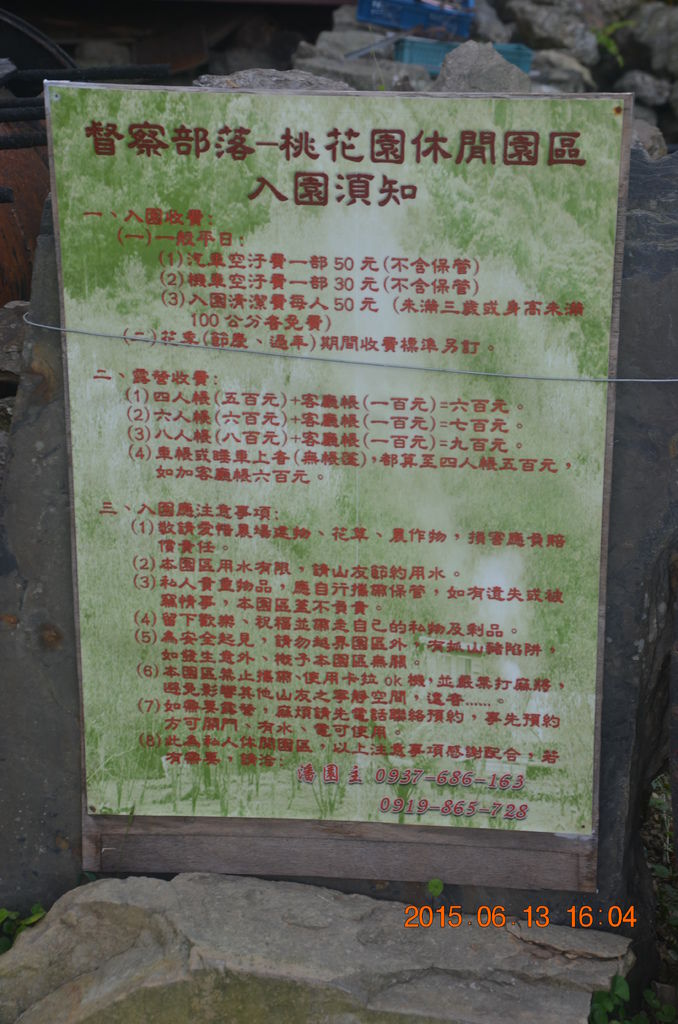 督察部落—桃花園休閒園區
入園須知
一、入園收費：
(一)一般平日：
(1)汽車空汙費一部 50 元(不含保管)
(2)機車空汙費一部 30 元(不含保管)
(3)入園清潔費每人 50 元 (未滿三歲或身高未滿
100 公分者免費)
(二)花季(節慶、過年)期間收費標準另訂。
二、露營收費：
(1)四人帳(五百元)+客廳帳(一百元)=六百元。
(2)六人帳(六百元)+客廳帳(一百元)=七百元。
(3)八人帳(八百元)+客廳帳(一百元)=九百元。
(4)車帳或睡車上者(無帳篷)，都算至四人帳五百元，
如加客廳帳六百元。
三、入園應注意事項：
(1)敬請愛惜農場建物、花草、農作物，損害應負賠
償責任。
(2)本園區用水有限，請山友節約用水。
(3)私人貴重物品，應自行攜帶保管，如有遺失或被
竊情事，本園區蓋不負責。
(4)留下歡樂、祝福並帶走自己的私物及剩品。
(5)為安全起見，請勿越界園區外，有抓山豬陷阱，
如發生意外、概予本園區無關。
(6)本園區禁止攜帶、使用卡拉 ok 機，並嚴禁打麻將，
避免影響其他山友之寧靜空間，還音......。
(7)如需要露營，麻煩請先電話聯絡預約，事先預約
方可開門、有水、電可使用。
(8)此為私人休閒園區，以上注意事項感謝配合，若
有需要，請洽：
潘園主 0937-686-163
0919-865-728
2015.06.13 16:04